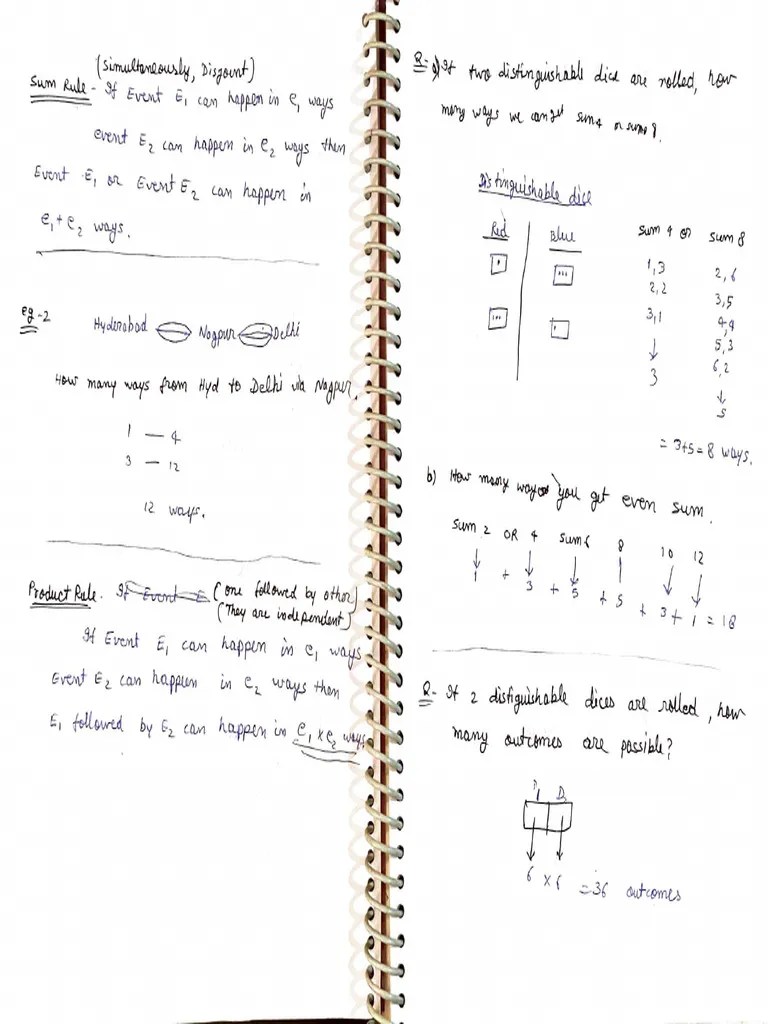 (Simultaneously, Disjoint)
Sum Rule - If Event E1 can happen in e1 ways
event E2 can happen in e2 ways then
Event E1 or Event E2 can happen in
e1 + e2 ways.
eg-2
Hyderabad Nagpur Delhi
How many ways from Hyd to Delhi via Nagpur.
1 — 4
3 — 12
12 ways.
Product Rule. If Event E (one followed by other)
(They are independent)
If Event E1 can happen in e1 ways
Event E2 can happen in e2 ways then
E1 followed by E2 can happen in e1 x e2 ways
Q- a) If two distinguishable dice are rolled, how
many ways we can get sum 4 or sum 8.
Distinguishable dice
Red Blue sum 4 or sum 8
1,3 2,6
2,2 3,5
3,1 4,4
5,3
3 6,2
5
= 3+5 = 8 ways.
b) How many ways you get even sum.
sum 2 OR 4 sum 6 8 10 12
1 + 3 + 5 + 5 + 3 + 1 = 18
Q- If 2 distiguishable dices are rolled, how
many outcomes are possible?
6 x 6 = 36 outcomes